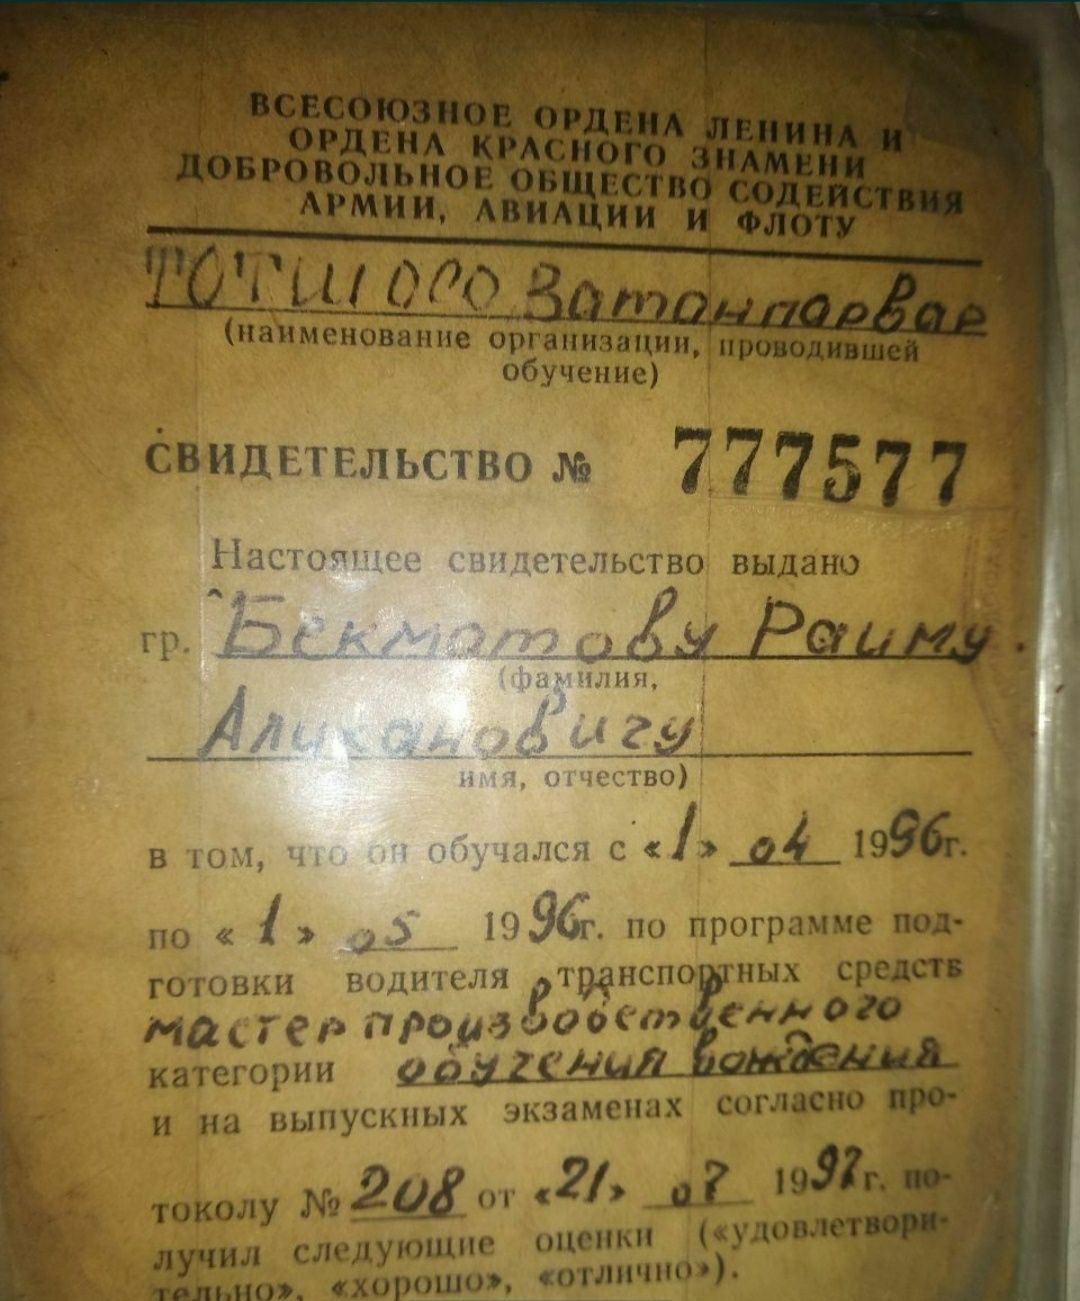 ВСЕСОЮЗНОЕ ОРДЕНА ЛЕНИНА И
ОРДЕНА КРАСНОГО ЗНАМЕНИ
ДОБРОВОЛЬНОЕ ОБЩЕСТВО СОДЕЙСТВИЯ
АРМИИ, АВИАЦИИ И ФЛОТУ
Ватанпарвар
(наименование организации, проводившей
обучение)
СВИДЕТЕЛЬСТВО № 777577
Настоящее свидетельство выдано
гр. Бекматову Раиму
(фамилия,
Алихановичу
имя, отчество)
в том, что он обучался с «1» 04 1996г.
по «1» 05 1996г. по программе под-
готовки водителя транспортных средств
мастер производственного
категории обучения вождения
и на выпускных экзаменах согласно про-
токолу № 208 от «21» 07 1997г. по-
лучил следующие оценки («удовлетвори-
тельно», «хорошо», «отлично»).